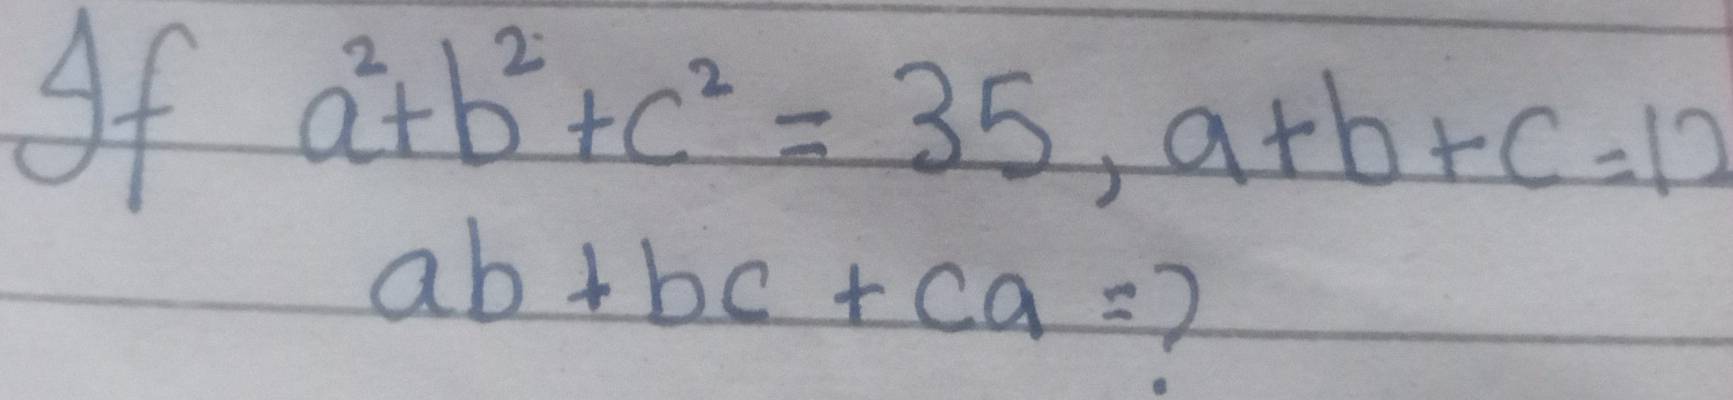 If a²+b²+c² = 35, a+b+c=12
ab+bc+ca=?